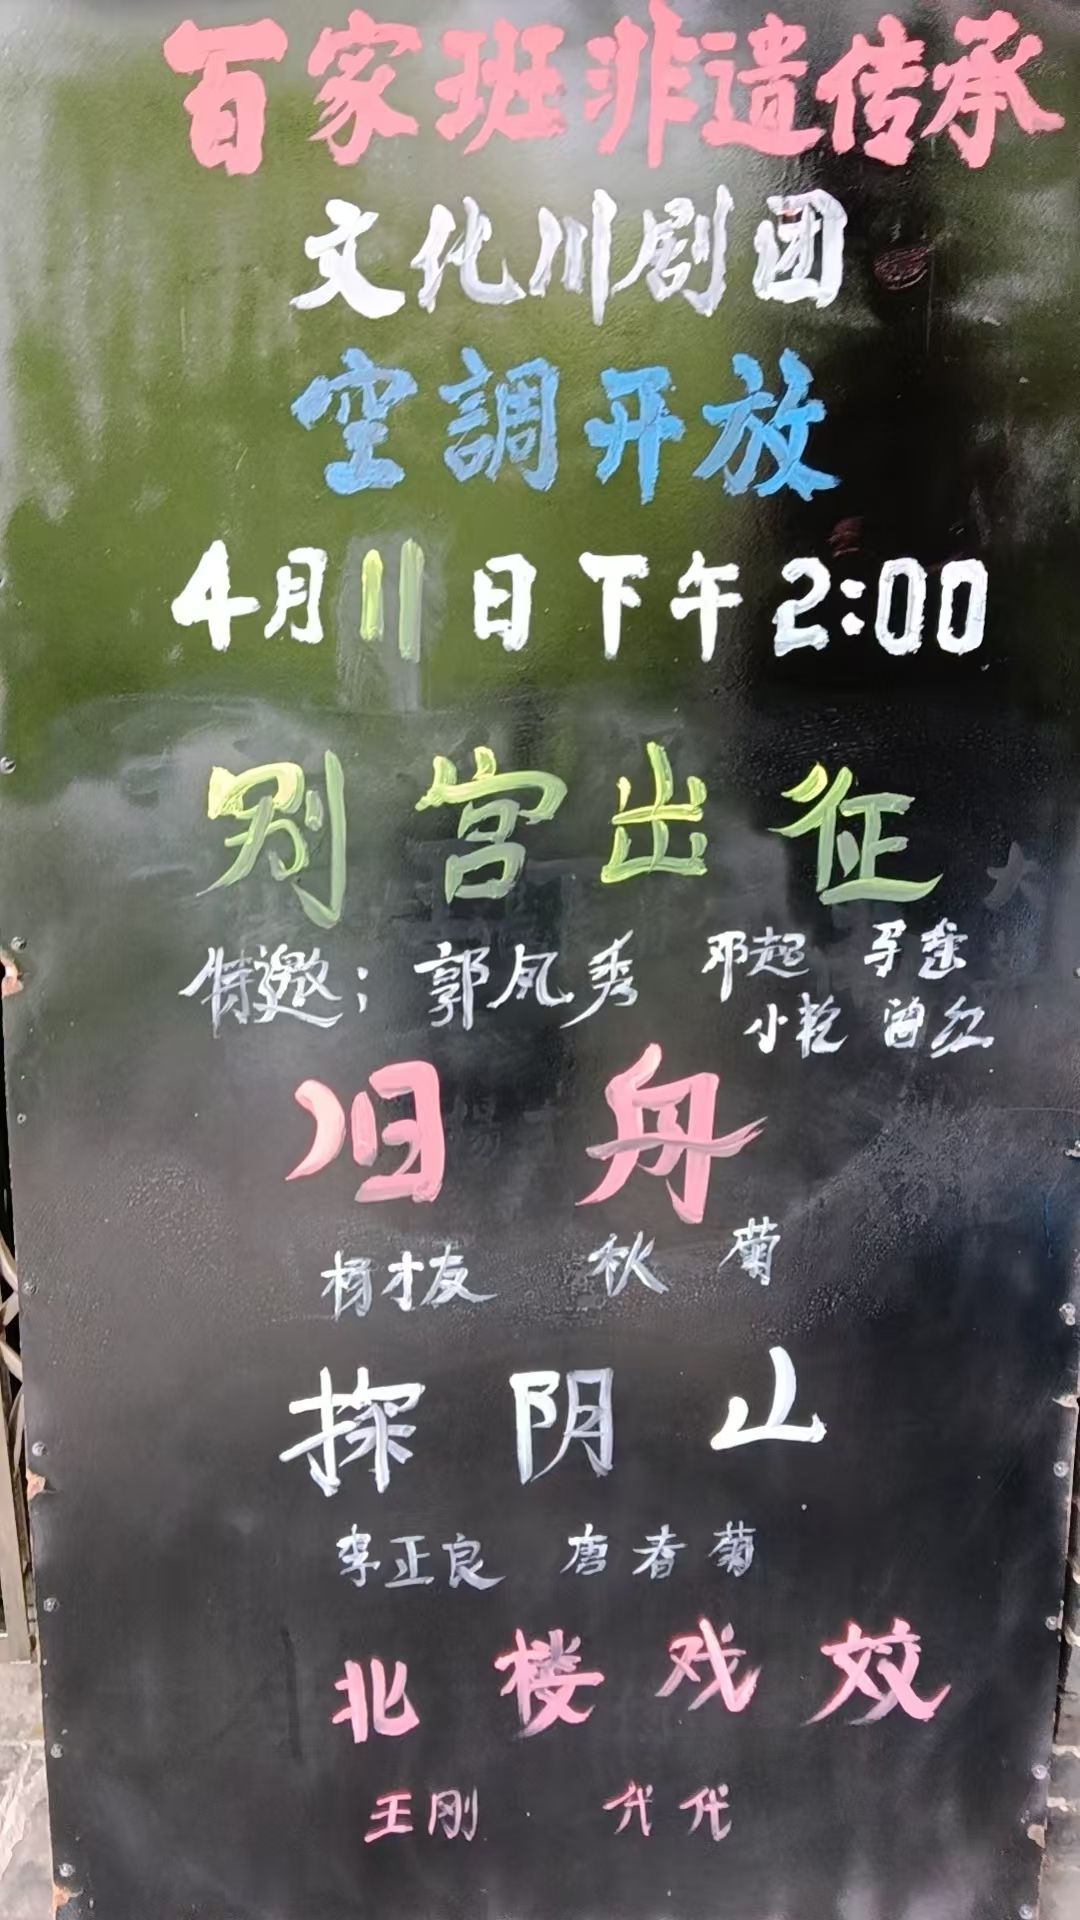 百家班非遗传承
文化川剧团
空調开放
4月11日下午2:00
别宫出征
特邀；郭凤秀 邓超 马奎
小乾 曾红
归舟
杨才友 秋菊
探阴山
李正良 唐春菊
北楼戏姣
王刚 代代